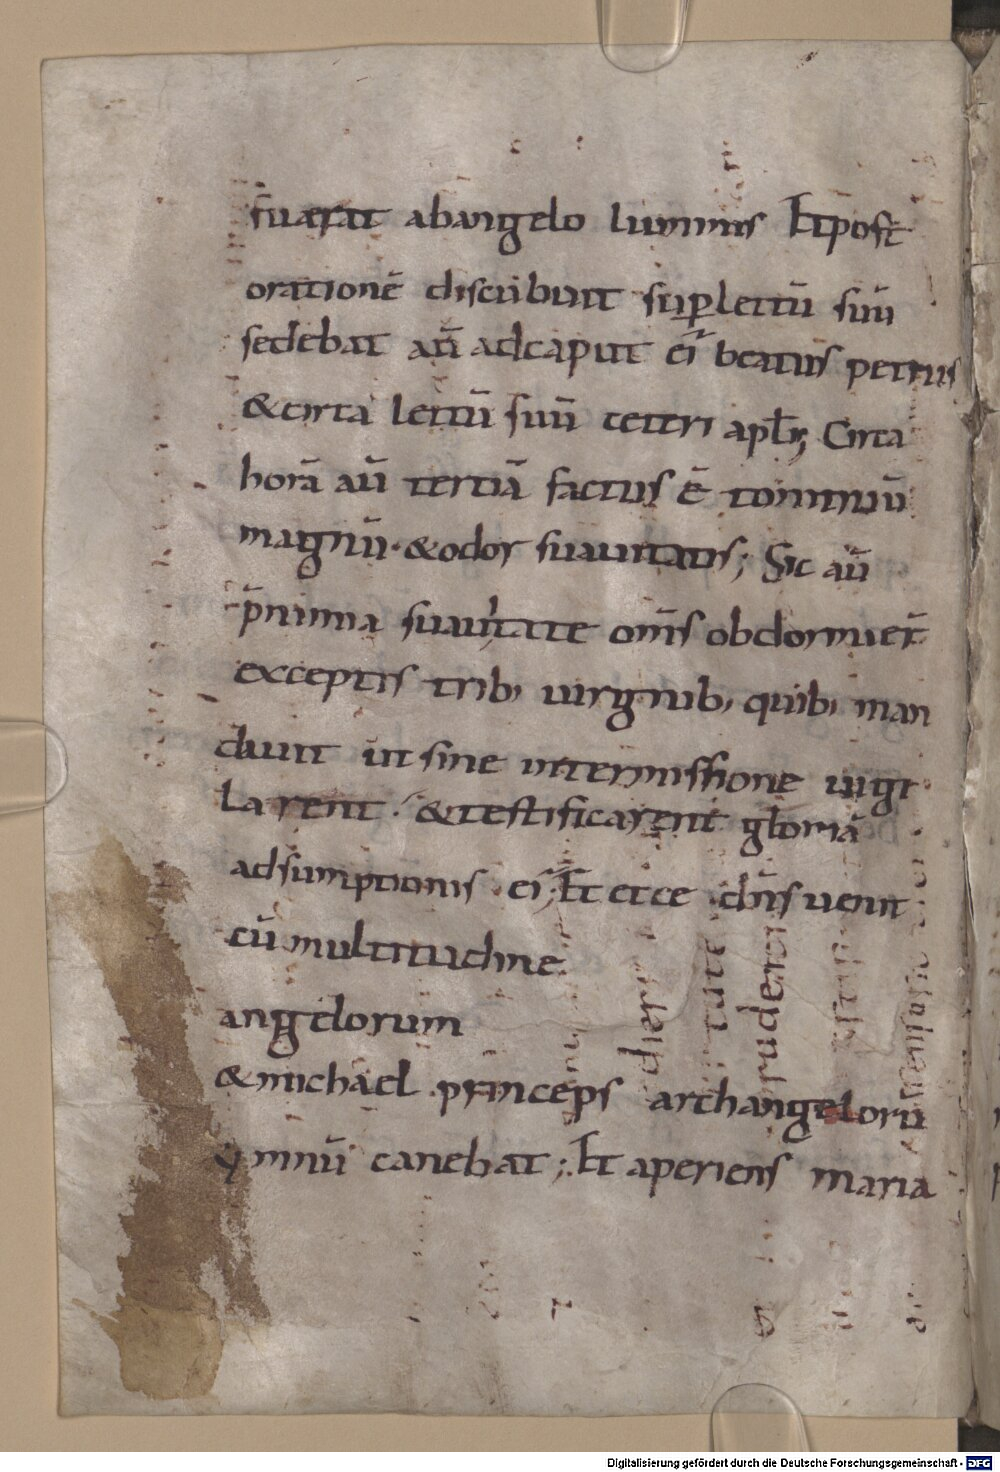 fuerat abangelo luminis Et post
orationē discubuit sup̱ lectū suū
sedebat aū adcaput ei᷒ beatus petrus
&circa lectū suū ceteri apłi; Circa
horā aū tertiā factus ē tonitruū
magnū · &odor suauitatis; Sic aū
p̄nimia suauitate om̄s obdormuer̄
exceptis trib; uirginib; quib; man
dauit ut sine intermissione uigi
larent · &testificarent gloriā
adsumptionis ei᷒; Et ecce dn̄s uenit
cū multitudine
angelorum
&michael princeps archangelorū
ymnū canebat; Et aperiens maria
Digitalisierung gefördert durch die Deutsche Forschungsgemeinschaft - DFG